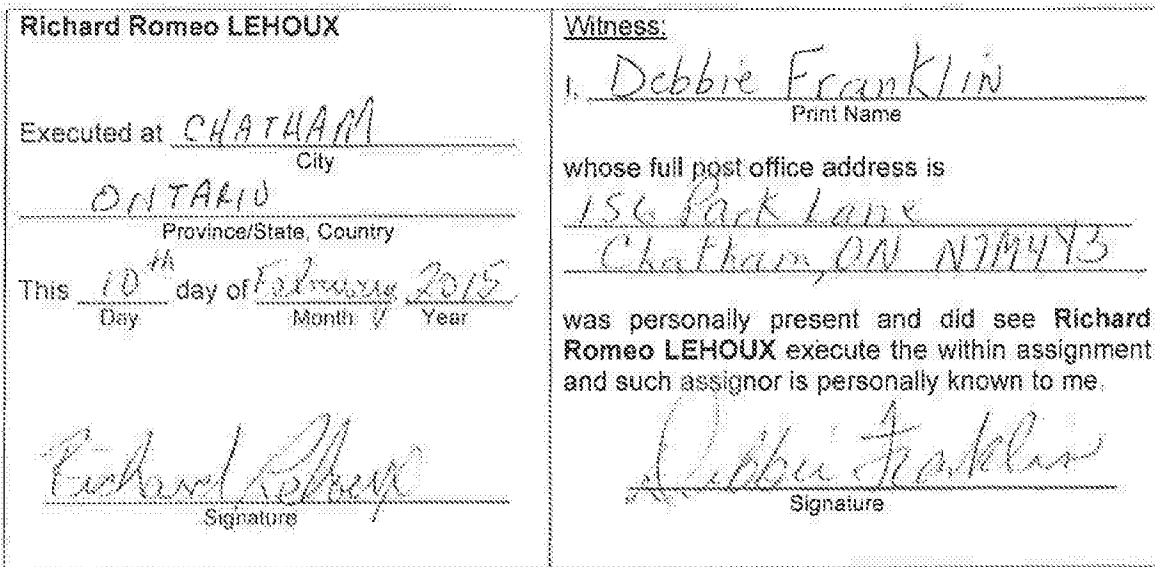 Richard Romeo LEHOUX
Executed at CHATHAM
City
ONTARIO
Province/State, Country
This 10th day of February 2015
Day Month Year
Richard Lehoux
Signature
Witness:
I, Debbie Franklin
Print Name
whose full post office address is
156 Park Lane
Chatham, ON N7M4Y3
was personally present and did see Richard
Romeo LEHOUX execute the within assignment
and such assignor is personally known to me.
Debbie Franklin
Signature